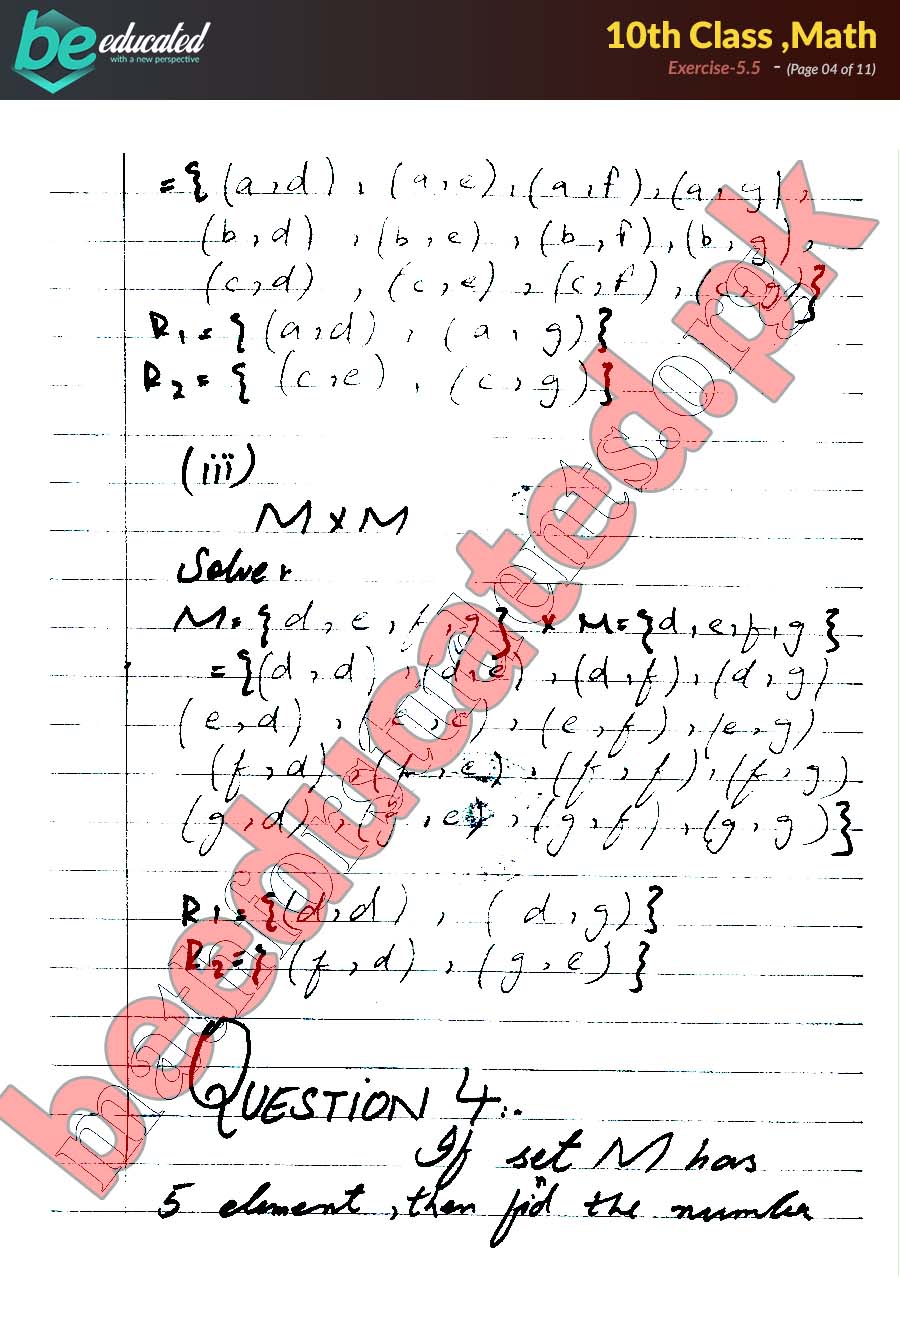 be educated
with a new perspective
10th Class ,Math
Exercise-5.5 - (Page 04 of 11)
= { (a,d) , (a,e) , (a,f) , (a,g) ,
(b,d) , (b,e) , (b,f) , (b,g) ,
(c,d) , (c,e) , (c,f) , (c,g) }
R1 = { (a,d) , (a,g) }
R2 = { (c,e) , (c,g) }
(iii)
M × M
Solve :
M = {d, e, f, g} × M = {d, e, f, g}
= {(d,d) , (d,e) , (d,f) , (d,g)
(e,d) , (e,e) , (e,f) , (e,g)
(f,d) , (f,e) , (f,f) , (f,g)
(g,d) , (g,e) , (g,f) , (g,g)}
R1 = {(d,d) , (d,g)}
R2 = {(f,d) , (g,e) }
QUESTION 4:.
If set M has
5 element, then find the number
beeducated.pk